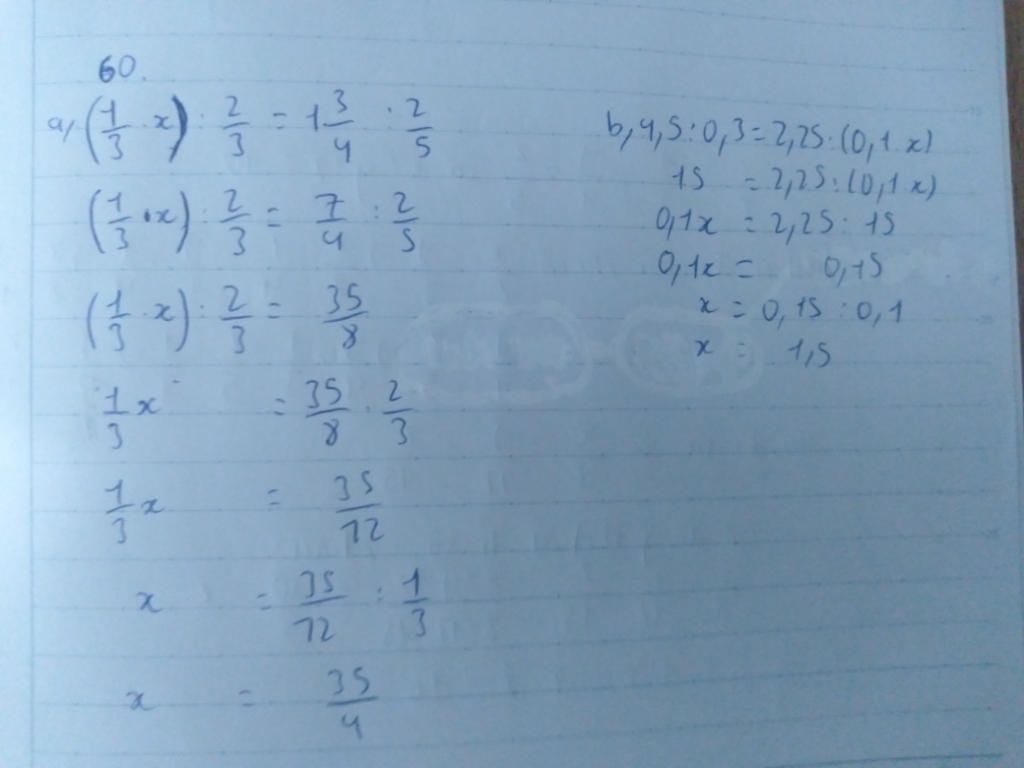 60.
a, (1/3 · x) : 2/3 = 1 3/4 : 2/5
(1/3 · x) : 2/3 = 7/4 : 2/5
(1/3 · x) : 2/3 = 35/8
1/3 x = 35/8 · 2/3
1/3 x = 35/12
x = 35/12 : 1/3
x = 35/4
b, 4,5 : 0,3 = 2,25 : (0,1 · x)
15 = 2,25 : (0,1 · x)
0,1x = 2,25 : 15
0,1x = 0,15
x = 0,15 : 0,1
x = 1,5